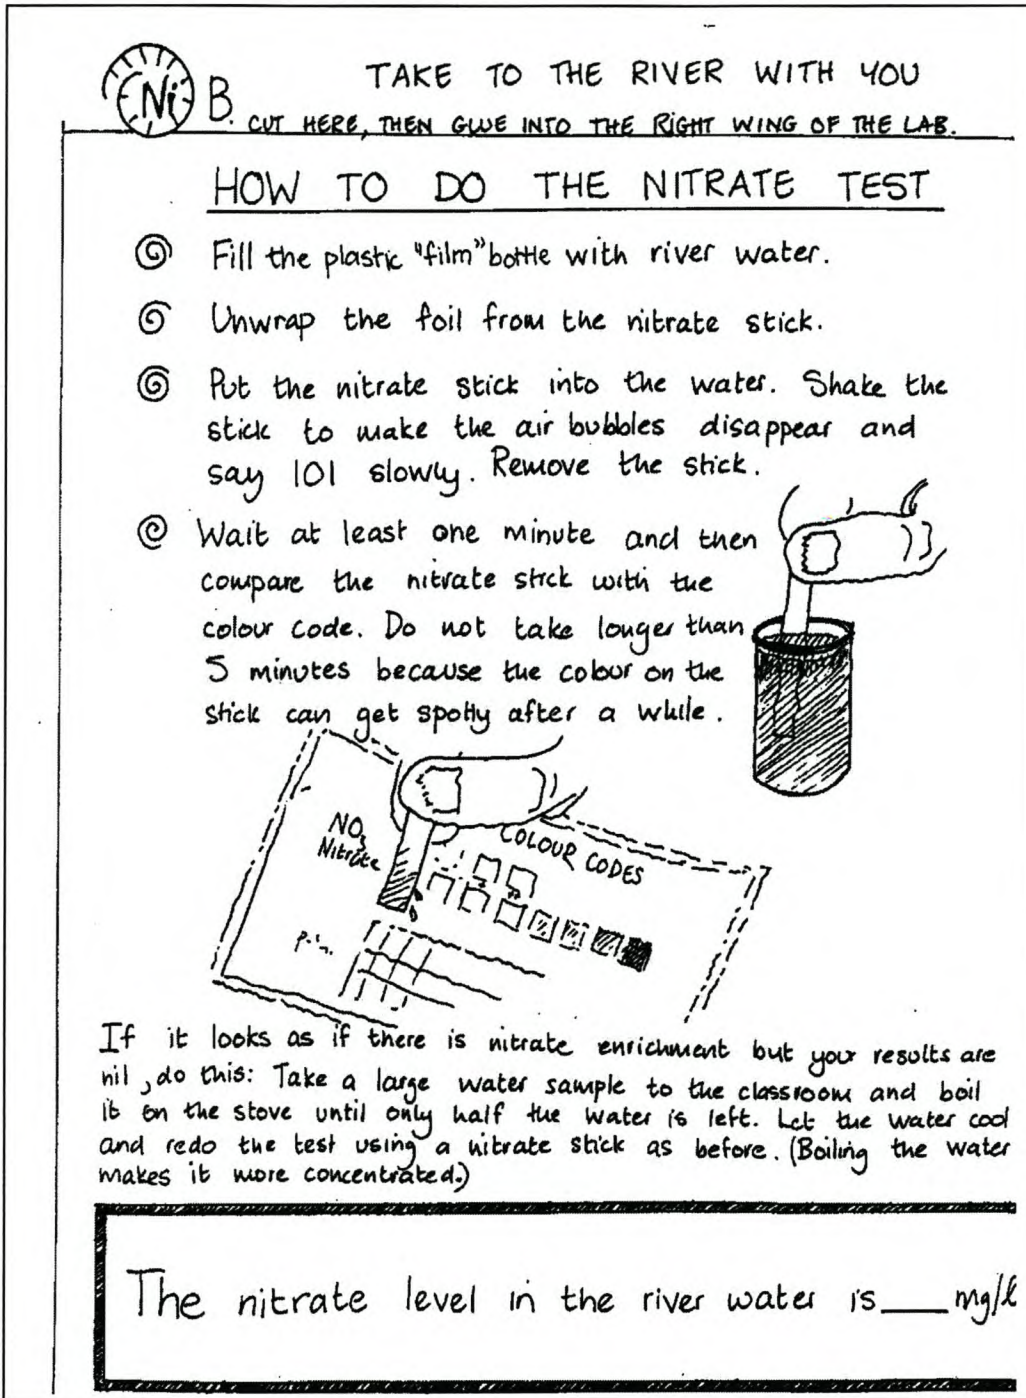 TAKE TO THE RIVER WITH YOU
Ni B. CUT HERE, THEN GLUE INTO THE RIGHT WING OF THE LAB.
HOW TO DO THE NITRATE TEST
Fill the plastic "film" bottle with river water.
Unwrap the foil from the nitrate stick.
Put the nitrate stick into the water. Shake the
stick to make the air bubbles disappear and
say 101 slowly. Remove the stick.
Wait at least one minute and then
compare the nitrate stick with the
colour code. Do not take longer than
5 minutes because the colour on the
stick can get spotty after a while.
NO3
Nitrate
COLOUR CODES
If it looks as if there is nitrate enrichment but your results are
nil, do this: Take a large water sample to the classroom and boil
it on the stove until only half the water is left. Let the water cool
and redo the test using a nitrate stick as before. (Boiling the water
makes it more concentrated.)
The nitrate level in the river water is ____ mg/l